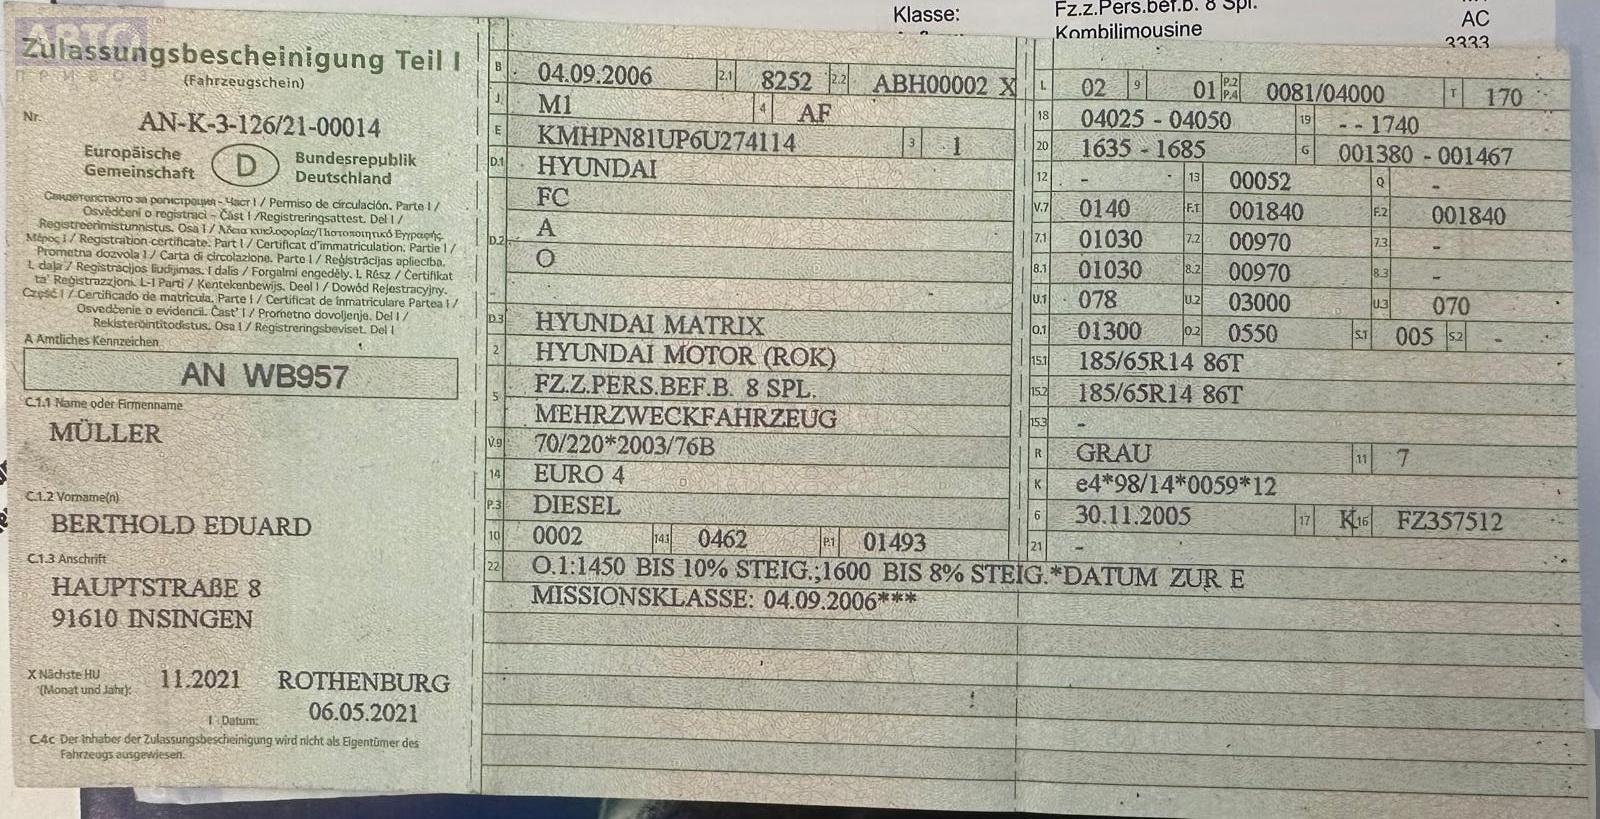 Klasse:
Fz.z.Pers.bef.b. 8 Spl.
Kombilimousine
AC
3333
Zulassungsbescheinigung Teil I
(Fahrzeugschein)
ПРИВОЗ
Nr.
AN-K-3-126/21-00014
Europäische
Gemeinschaft
D
Bundesrepublik
Deutschland
Свидетелство за регистрация - Част I / Permiso de circulación. Parte I /
Osvědčení o registraci - Část I / Registreringsattest. Del I /
Registreerimistunnistus. Osa I / Άδεια κυκλοφορίας/Πιστοποιητικό Εγγραφής.
Μέρος I / Registration certificate. Part I / Certificat d'immatriculation. Partie I /
Prometna dozvola I / Carta di circolazione. Parte I / Reģistrācijas apliecība.
I. daļa / Registracijos liudijimas. I dalis / Forgalmi engedély. I. Rész / Ċertifikat
ta' Reġistrazzjoni. L-I Parti / Kentekenbewijs. Deel I / Dowód Rejestracyjny.
Część I / Certificado de matrícula. Parte I / Certificat de înmatriculare Partea I /
Osvedčenie o evidencii. Časť I / Prometno dovoljenje. Del I /
Rekisteröintitodistus. Osa I / Registreringsbeviset. Del I
A Amtliches Kennzeichen
AN WB957
C.1.1 Name oder Firmenname
MÜLLER
C.1.2 Vorname(n)
BERTHOLD EDUARD
C.1.3 Anschrift
HAUPTSTRAßE 8
91610 INSINGEN
X Nächste HU
(Monat und Jahr):
11.2021
ROTHENBURG
I Datum:
06.05.2021
C.4c Der Inhaber der Zulassungsbescheinigung wird nicht als Eigentümer des
Fahrzeugs ausgewiesen.
B 04.09.2006 2.1 8252 2.2 ABH00002 X
J M1 4 AF
E KMHPN81UP6U274114 3 1
D.1 HYUNDAI
FC
D.2 A
O
-
D.3 HYUNDAI MATRIX
2 HYUNDAI MOTOR (ROK)
5 FZ.Z.PERS.BEF.B. 8 SPL.
MEHRZWECKFAHRZEUG
V.9 70/220*2003/76B
14 EURO 4
P.3 DIESEL
10 0002 14.1 0462 P.1 01493
22 O.1:1450 BIS 10% STEIG.;1600 BIS 8% STEIG.*DATUM ZUR E
MISSIONSKLASSE: 04.09.2006***
L 02 9 01 P.2 P.4 0081/04000 T 170
18 04025 - 04050 19 - - 1740
20 1635 - 1685 G 001380 - 001467
12 - 13 00052 Q -
V.7 0140 F.1 001840 F.2 001840
7.1 01030 7.2 00970 7.3 -
8.1 01030 8.2 00970 8.3 -
U.1 078 U.2 03000 U.3 070
O.1 01300 O.2 0550 S.1 005 S.2 -
15.1 185/65R14 86T
15.2 185/65R14 86T
15.3 -
R GRAU 11 7
K e4*98/14*0059*12
6 30.11.2005 17 K 16 FZ357512
21 -